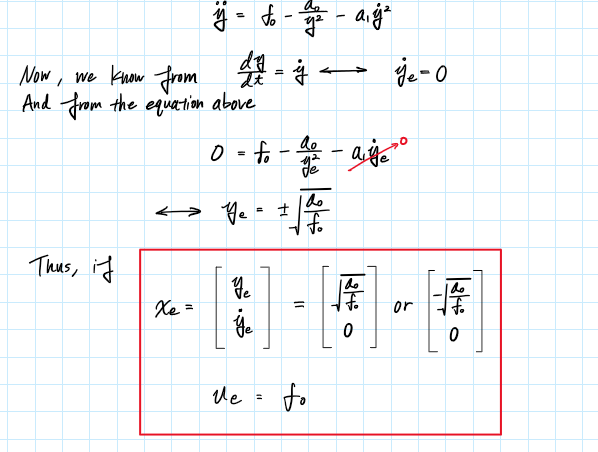 ÿ = f₀ - a₀/y² - a₁ẏ²
Now, we know from dy/dt = ẏ ⟷ ẏₑ = 0
And from the equation above
0 = f₀ - a₀/yₑ² - a₁ẏₑ → 0
⟷ yₑ = ±√(a₀/f₀)
Thus, if
xₑ = [yₑ; ẏₑ] = [√(a₀/f₀); 0] or [-√(a₀/f₀); 0]
uₑ = f₀